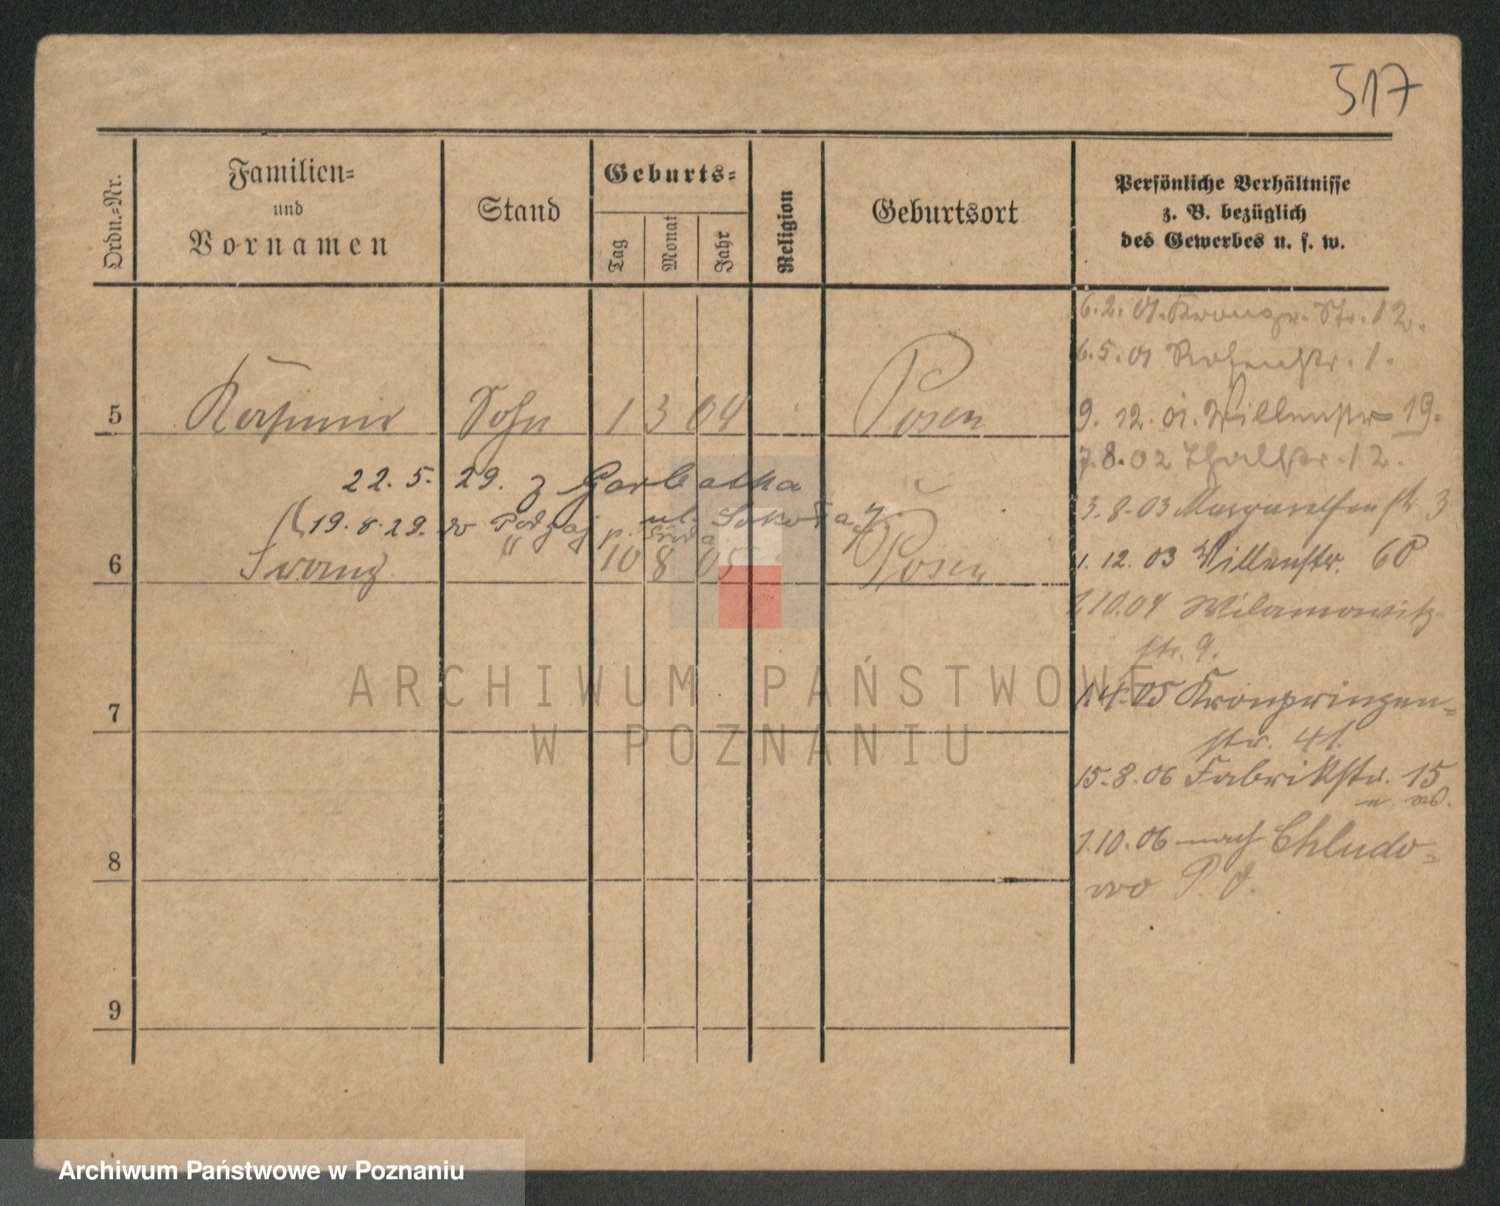 517
Ordn.-Nr.
Familien-
und
Vornamen
Stand
Geburts-
Tag
Monat
Jahr
Religion
Geburtsort
Persönliche Verhältnisse
z. B. bezüglich
des Gewerbes u. s. w.
5 Kasimir Sohn 1 3 04 Posen
22. 5. 29. z Garbatka
19. 8. 29. do
6 Franz " 10 8 05 Posen
7
8
9
6.2.01. Kronpr. Str. 12.
6.5.01 Rosenstr. 1.
9. 12. 01. Villenstr 19.
7.8.02 Thalstr. 12.
3.8.03 Margaretenstr 3
1. 12. 03 Villenstr. 6
1.10.04 Wilamowitz
str. 9.
1.4.05 Kronprinzen-
str. 41.
15.8.06 Fabrikstr. 15
1.10.06 nach Chludo-
wo P. O.
ARCHIWUM PAŃSTWOWE
W POZNANIU
Archiwum Państwowe w Poznaniu